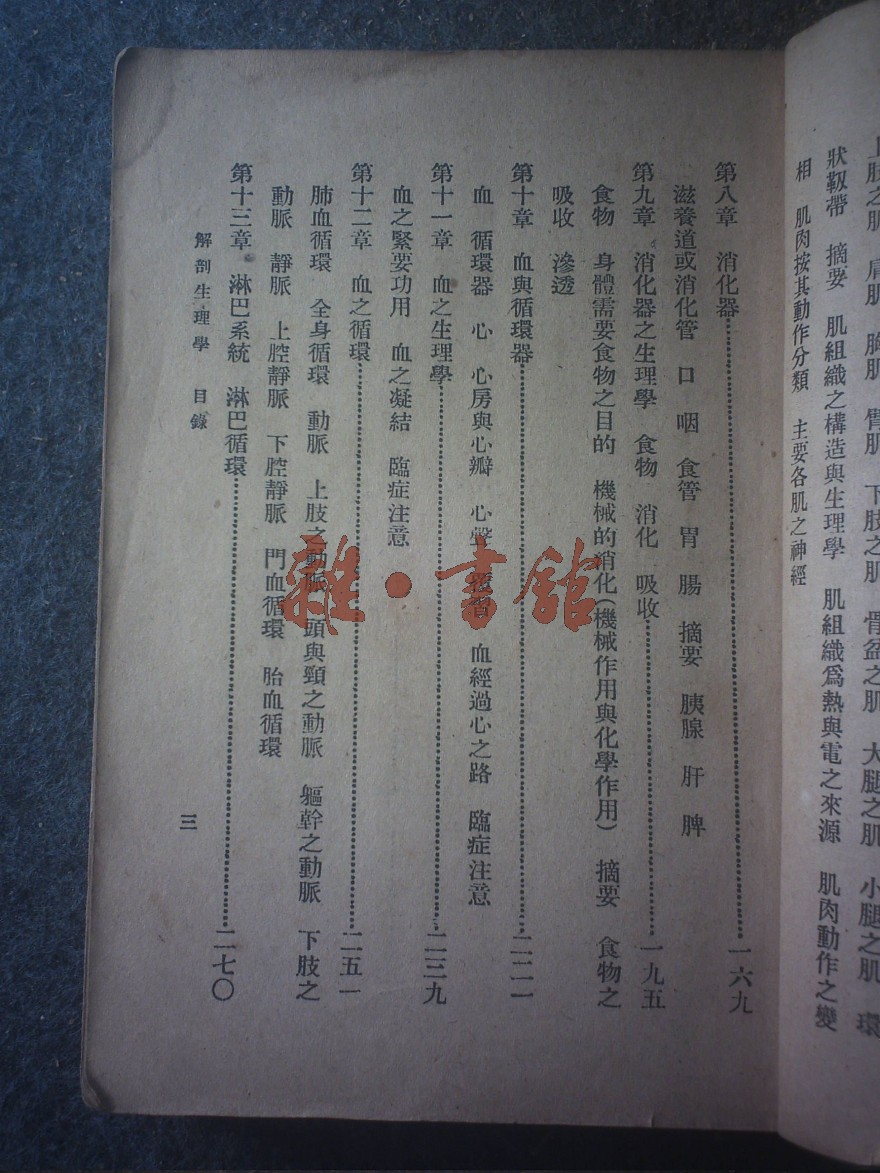 上肢之肌 肩肌 胸肌 臂肌 下肢之肌 骨盆之肌 大腿之肌 小腿之肌 環
狀靱帶 摘要 肌組織之構造與生理學 肌組織爲熱與電之來源 肌肉動作之變
相 肌肉按其動作分類 主要各肌之神經
第八章 消化器……一六九
滋養道或消化管 口 咽 食管 胃 腸 摘要 胰腺 肝 脾
第九章 消化器之生理學 食物 消化 吸收……一九五
食物 身體需要食物之目的 機械的消化(機械作用與化學作用) 摘要 食物之
吸收 滲透
第十章 血與循環器……二二一
血 循環器 心 心房與心瓣 心聲 血經過心之路 臨症注意
第十一章 血之生理學……二三九
血之緊要功用 血之凝結 臨症注意
第十二章 血之循環……二五一
肺血循環 全身循環 動脈 上肢之動脈 頭與頸之動脈 軀幹之動脈 下肢之
動脈 靜脈 上腔靜脈 下腔靜脈 門血循環 胎血循環
第十三章 淋巴系統 淋巴循環……二七〇
解剖生理學 目錄
三
雜·書館